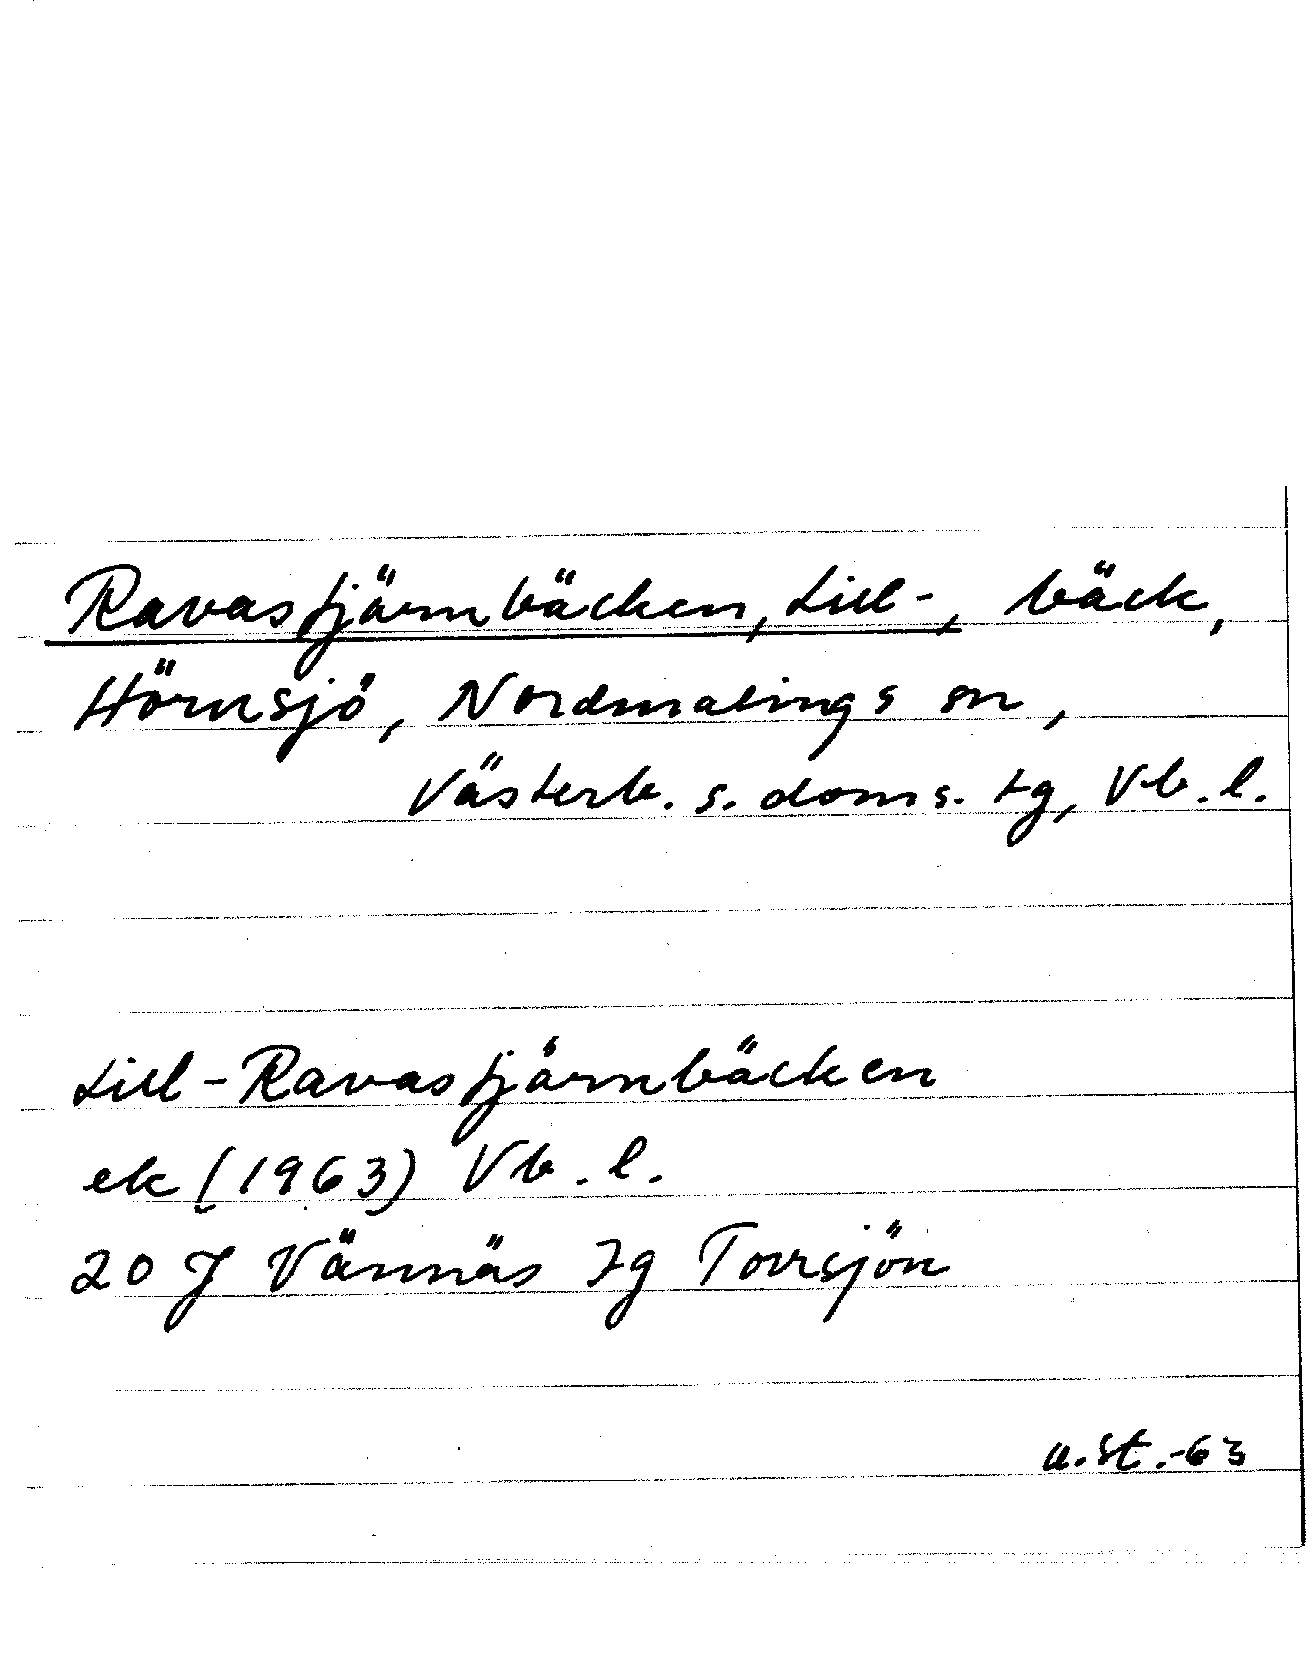 Ravastjärnbäcken, Lill-, bäck,
Hörnsjö, Nordmalings sn,
Västerb. s. doms. tg, Vb. l.
Lill-Ravastjärnbäcken
ek (1963) Vb. l.
20 J Vännäs Ig Torrsjön
u.st.-63